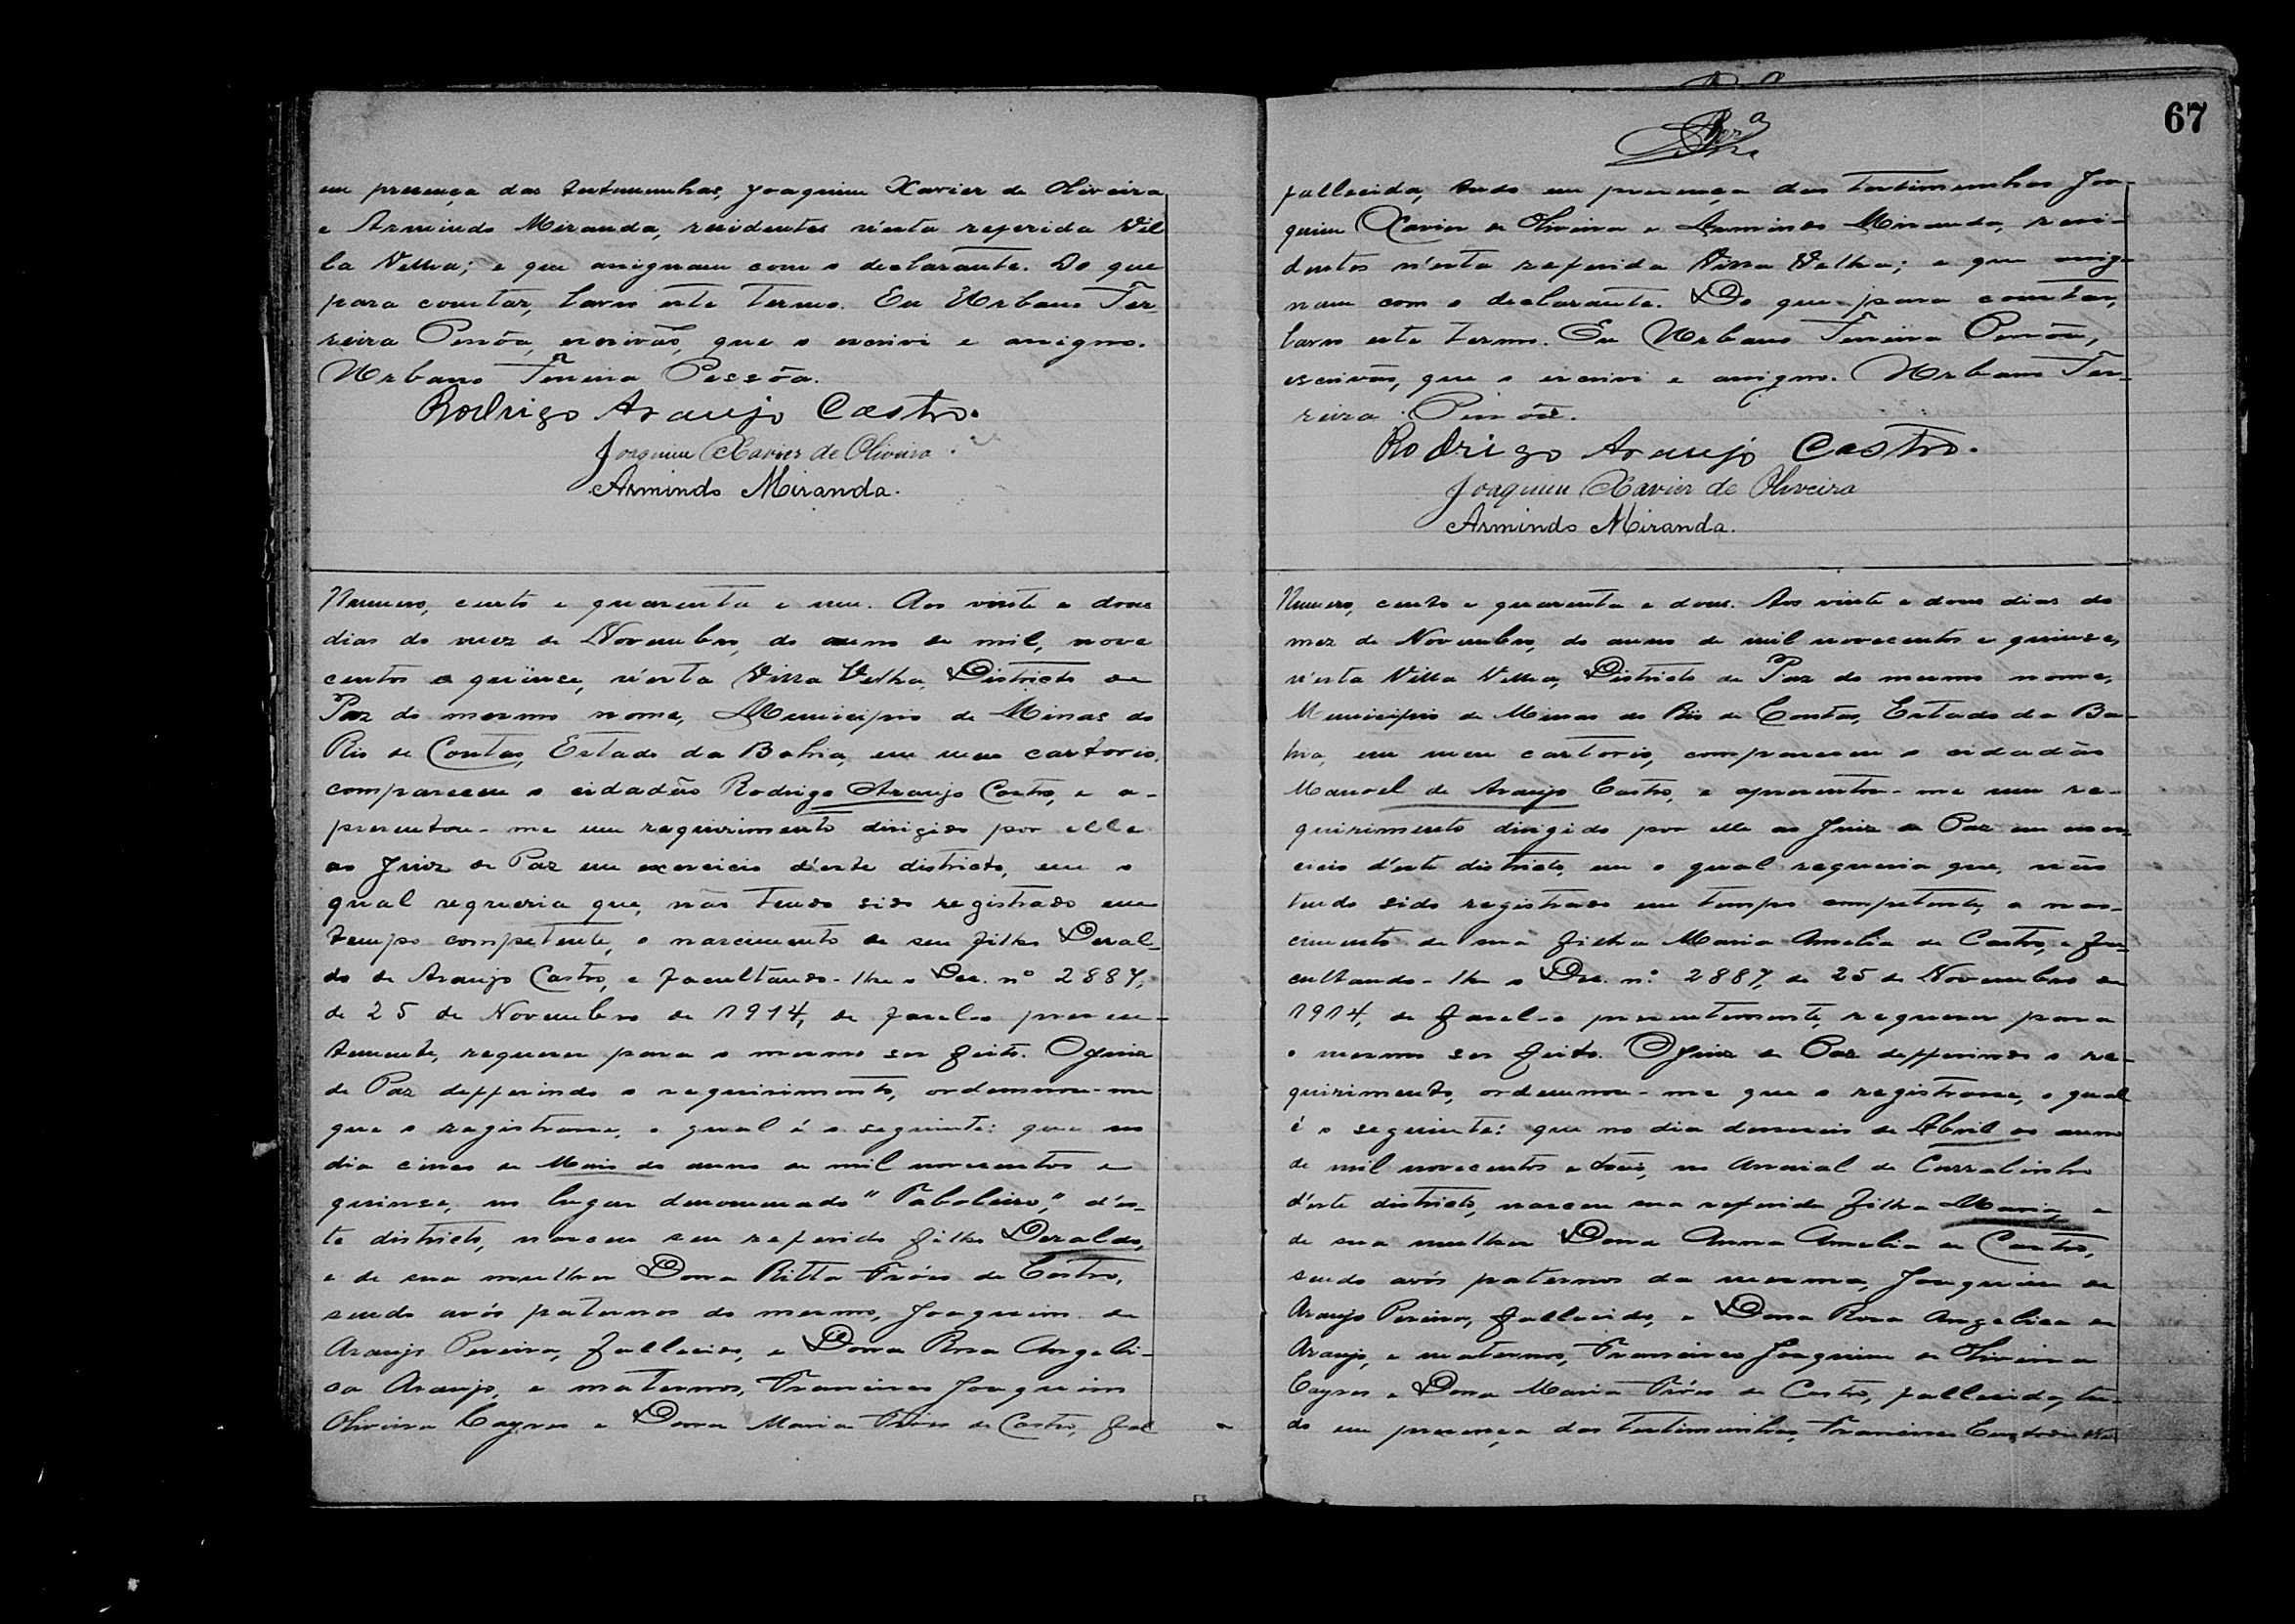 em presença das testemunhas, Joaquim Xavier de Oliveira
e Armindo Miranda, residentes n'esta referida Vil
la Velha; e que assignam com o declarante. Do que
para constar, lavro este termo. Eu Urbano Fer-
reira Pessôa, escrivão, que o escrevi e assigno.
Urbano Ferreira Pessôa.
Rodrigo Araujo Castro.
Joaquim Xavier de Oliveira.
Armindo Miranda.
Numero, cento e quarenta e um. Aos vinte e dous
dias do mez de Novembro, do anno de mil, nove
centos e quinze, n'esta Villa Velha, Districto de
Paz do mesmo nome, Municipio de Minas do
Rio de Contas, Estado da Bahia, em meu cartorio,
compareceu o cidadão Rodrigo Araujo Castro, e a-
presentou-me um requirimento dirigido por elle
ao Juiz de Paz em exercicio d'este districto, em o
qual requeria que, não tendo sido registrado em
tempo competente, o nascimento de seu filho Deral-
do de Araujo Castro, e facultando-lhe o Dec. nº 2887,
de 25 de Novembro de 1914, de fazel-o presen-
temente, requerer para o mesmo ser feito. O Juiz
de Paz defferindo o requirimento, ordennou-me
que o registrasse, o qual é o seguinte: que no
dia cinco de Maio do anno de mil novecentos e
quinze, no lugar denominado "Taboleiro," d'es-
te districto, nasceu seu referido filho Deraldo,
e de sua mulher Dona Ritta Fróes de Castro,
sendo avós paternos do mesmo, Joaquim de
Araujo Pereira, fallecido, e Dona Rosa Angeli-
ca Araujo, e maternos, Francisco Joaquim
Oliveira Cayres e Dona Maria Fróes de Castro, fal
67
fallecida, tudo em presença das testimunhas Joa-
quim Xavier de Oliveira e Armindo Miranda, resi-
dentes n'esta referida Villa Velha; e que assig-
nam com o declarante. Do que para constar,
lavro este termo. Eu Urbano Ferreira Pessôa,
escrivão, que o escrevi e assigno. Urbano Fer-
reira Pessôa.
Rodrigo Araujo Castro.
Joaquim Xavier de Oliveira
Armindo Miranda.
Numero, cento e quarenta e dous. Aos vinte e dous dias do
mez de Novembro, do anno de mil novecentos e quinze,
n'esta Villa Velha, Districto de Paz do mesmo nome,
Municipio de Minas do Rio de Contas, Estado da Ba-
hia, em meu cartorio, compareceu o cidadão
Manoel de Araujo Castro, e apresentou-me um re-
quirimento dirigido por elle ao Juiz de Paz em exer-
cicio d'este districto, em o qual requeria que, não
tendo sido registrado em tempo competente, o nas-
cimento de sua filha Maria Amelia de Castro, e fa-
cultando-lhe o Dec. n.º 2887, de 25 de Novembro de
1914, de fazel-o presentemente, requerer para
o mesmo ser feito. O Juiz de Paz defferindo o re-
quirimento, ordennou-me que o registrasse, o qual
é o seguinte: que no dia deseseis de Abril do anno
de mil novecentos e , no Arraial de Curralinho
d'este districto, nasceu sua referida filha Maria, e
de sua mulher Dona Anna Amelia de Castro,
sendo avós paternos da mesma, Joaquim de
Araujo Pereira, fallecido, e Dona Rosa Angelica de
Araujo, e maternos, Francisco Joaquim de Oliveira
Cayres e Dona Maria Fróes de Castro, fallecida, tu-
do em presença das testimunhas, Francisco